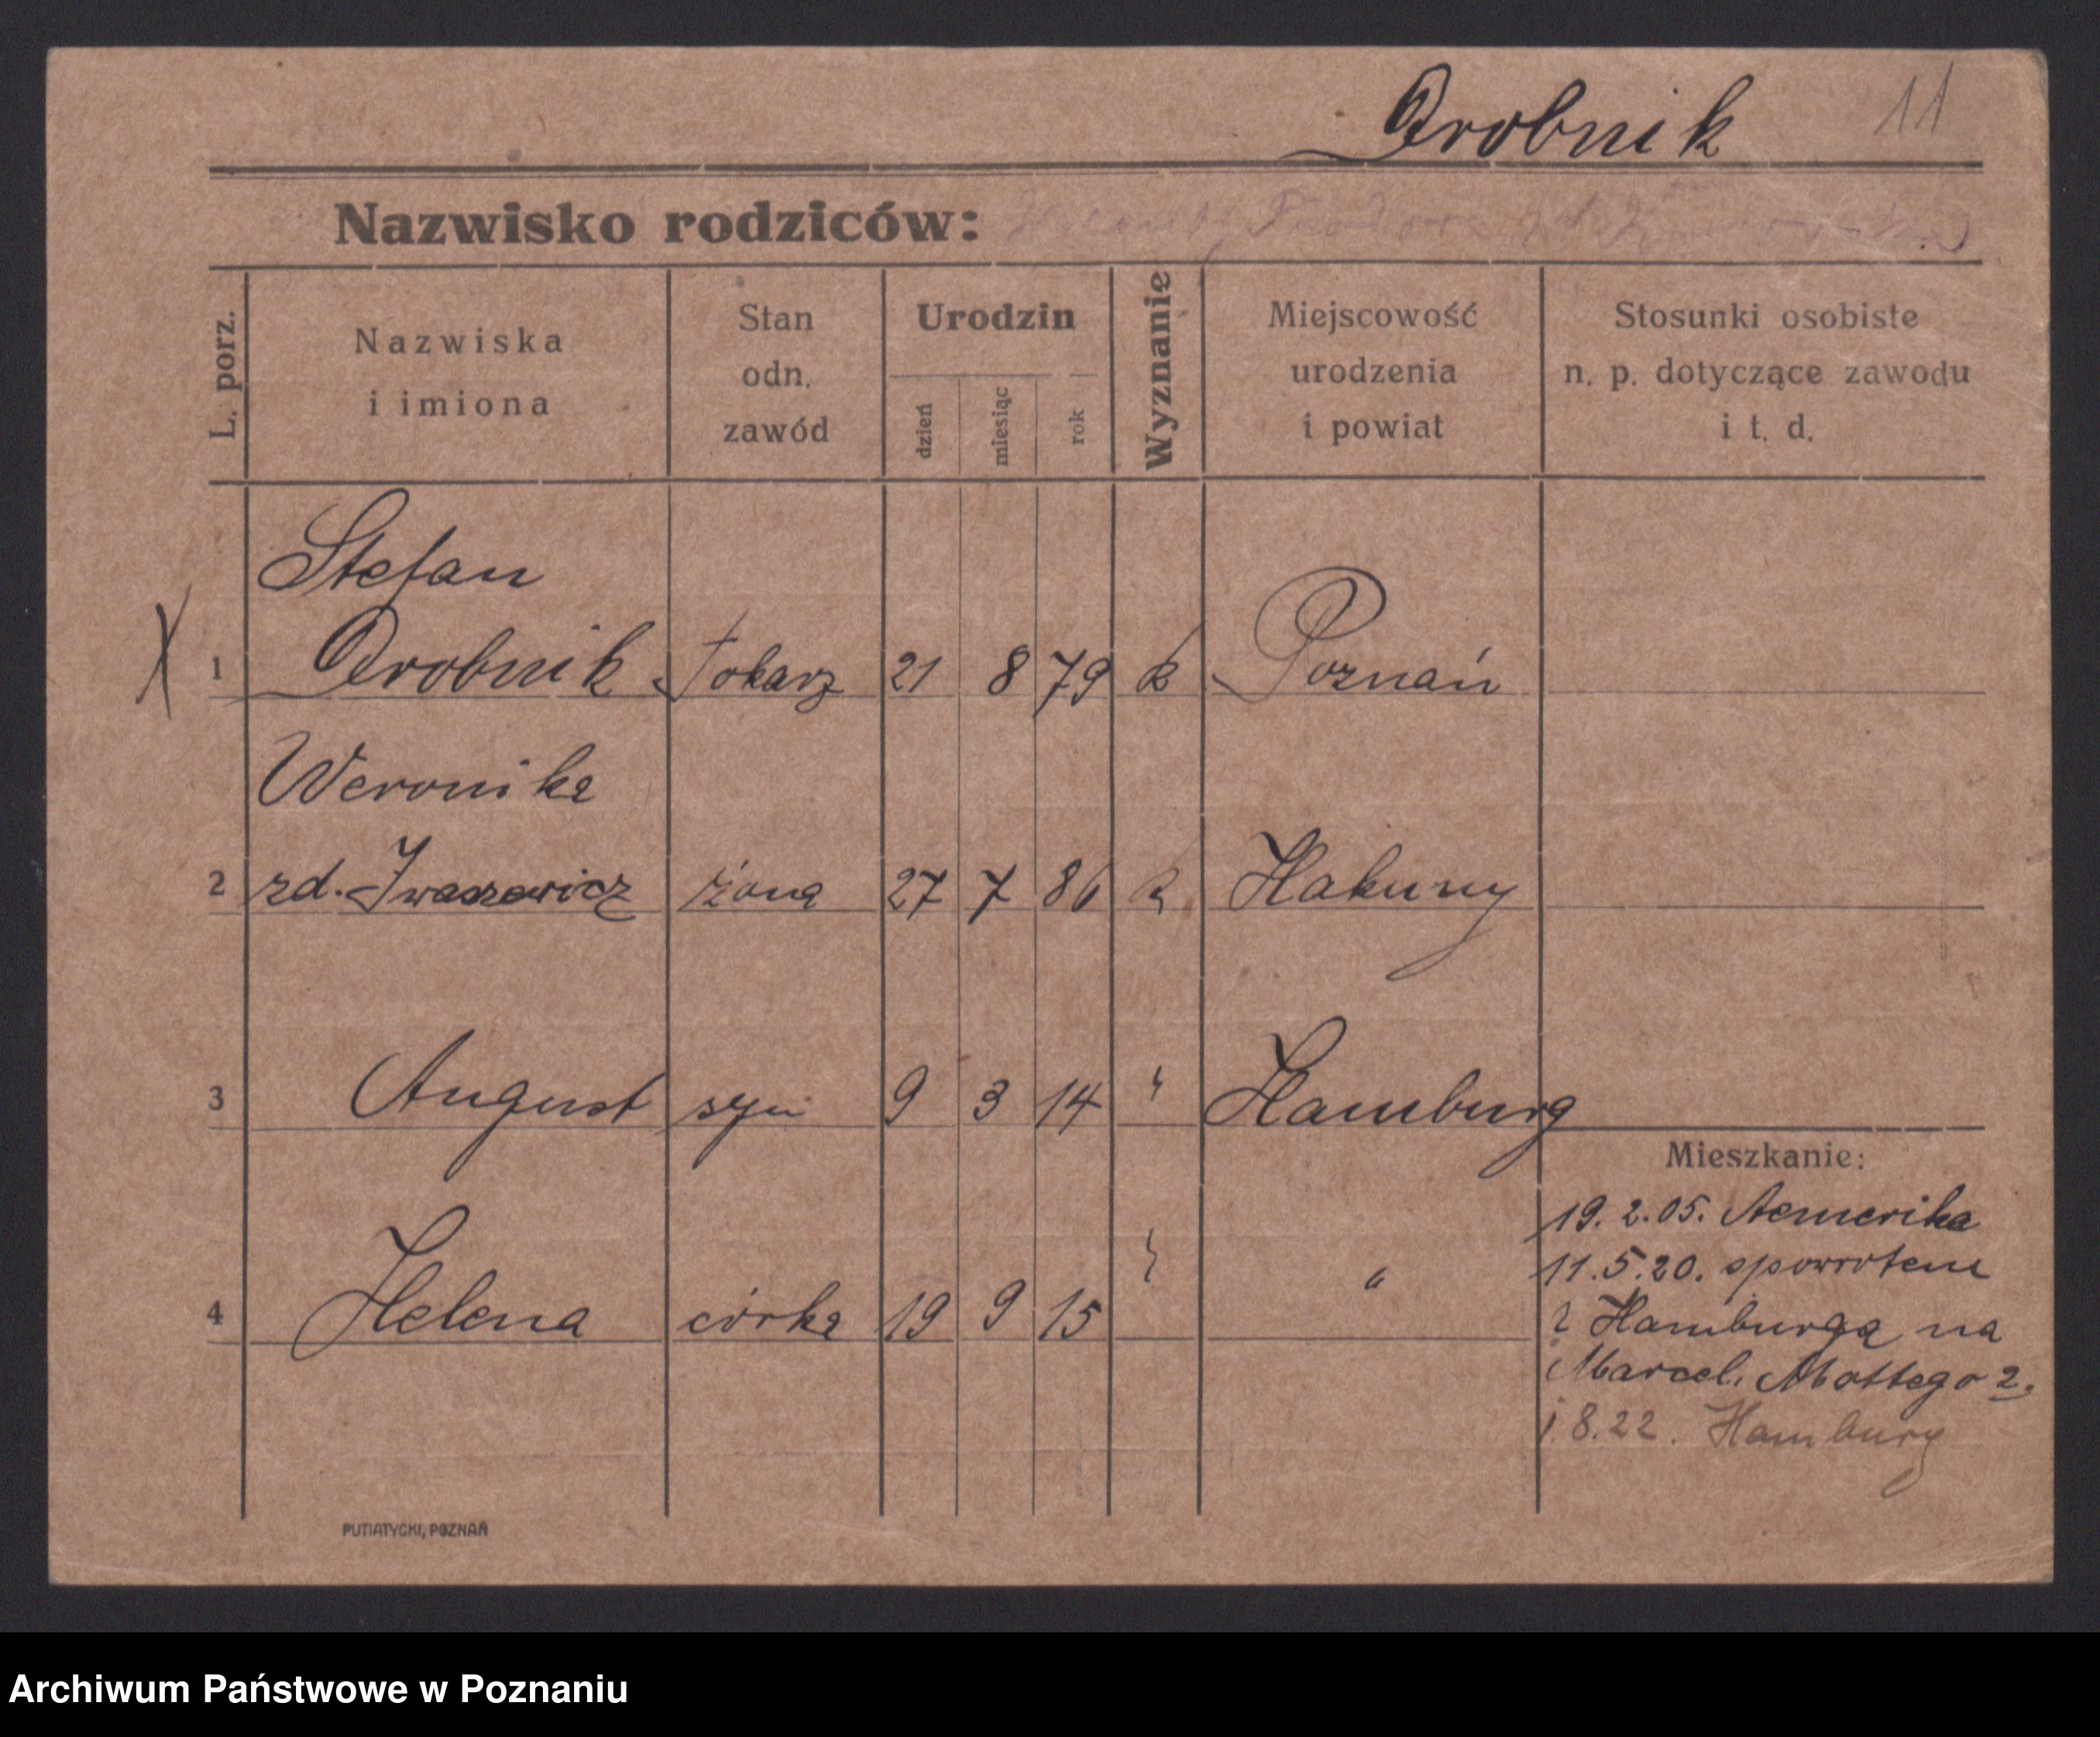 Drobnik 11
Nazwisko rodziców:
L. porz.
Nazwiska
i imiona
Stan
odn.
zawód
Urodzin
dzień
miesiąc
rok
Wyznanie
Miejscowość
urodzenia
i powiat
Stosunki osobiste
n. p. dotyczące zawodu
i t. d.
Stefan
X 1 Drobnik tokarz 21 8 79 k Poznań
Weronika
2 zd. Iwaszewicz żona 27 7 86 k Hakuny
3 August syn 9 3 14 " Hamburg
Mieszkanie:
19. 2. 05. Aemerika
11. 5. 20. spowrotem
z Hamburga na
Marcel. Mottego 2.
4 Helena córka 19 9 15 " "
1 8. 22. Hamburg
PUTIATYCKI, POZNAŃ
Archiwum Państwowe w Poznaniu